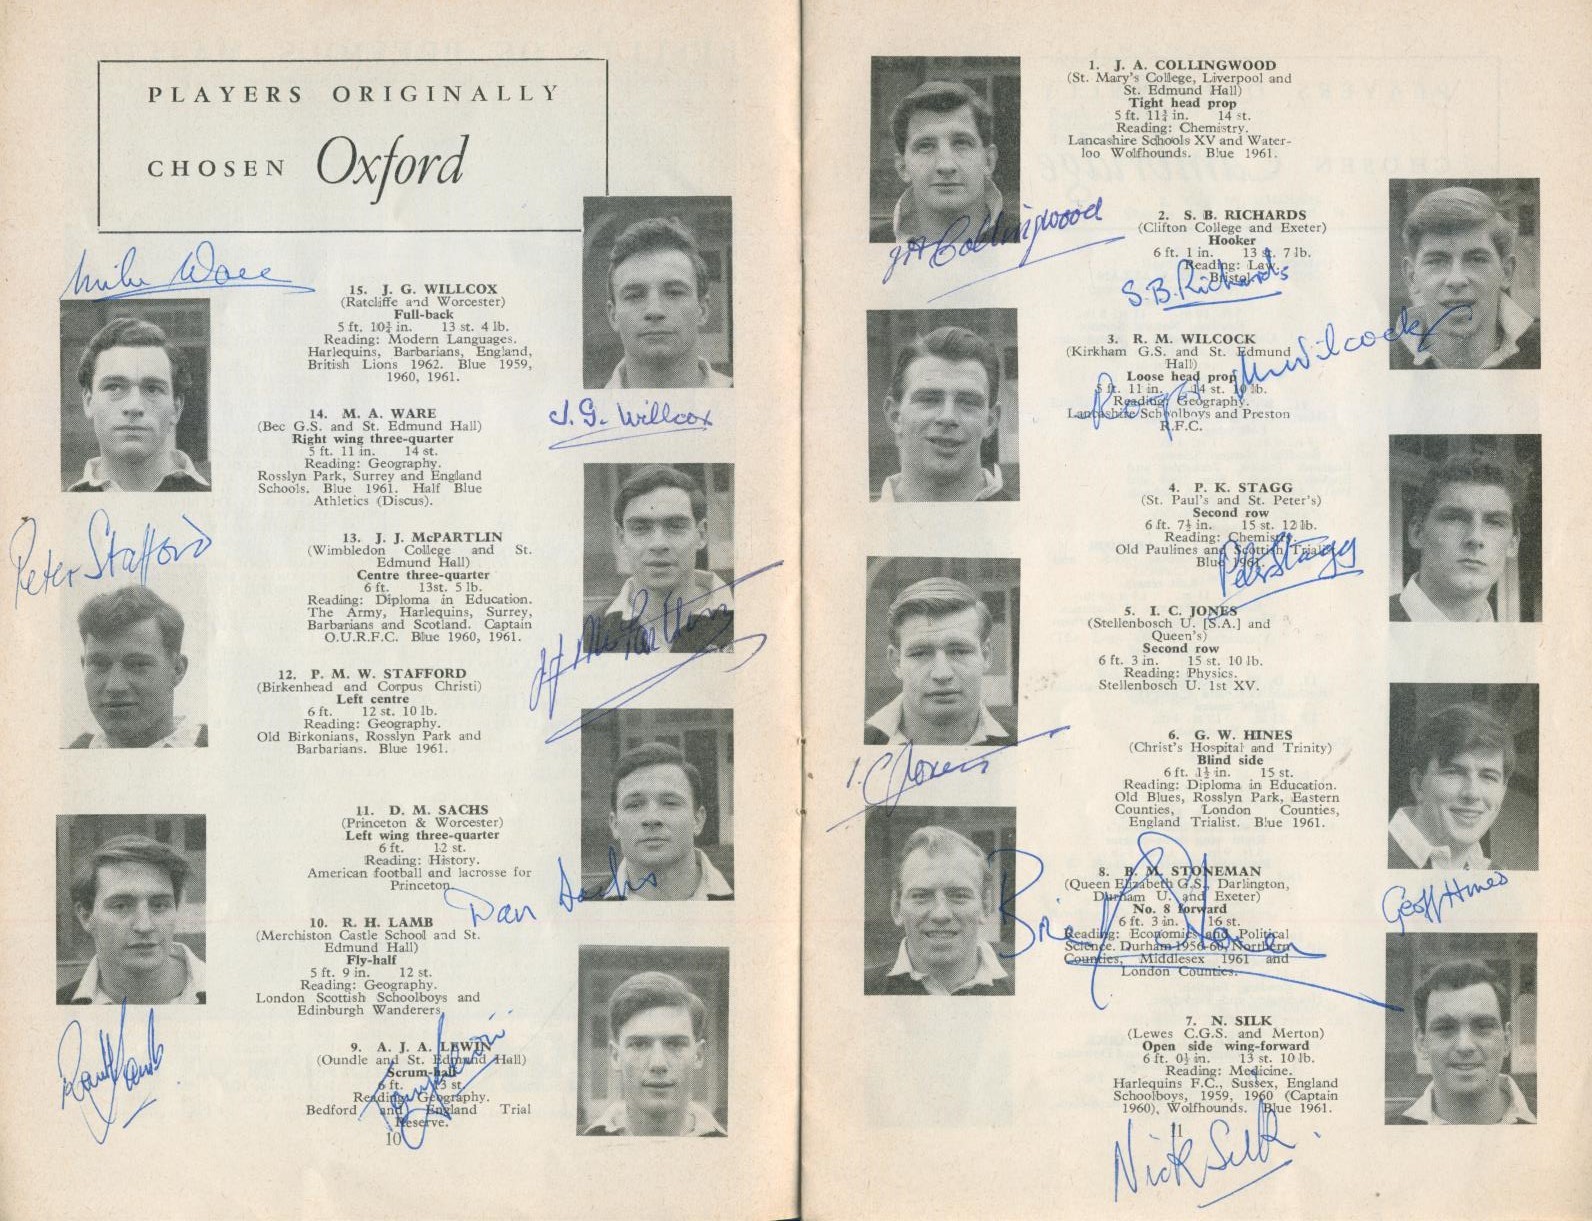 PLAYERS ORIGINALLY
CHOSEN Oxford
Mike Ware
15. J. G. WILLCOX
(Ratcliffe and Worcester)
Full-back
5 ft. 10¾ in. 13 st. 4 lb.
Reading: Modern Languages.
Harlequins, Barbarians, England,
British Lions 1962. Blue 1959,
1960, 1961.
J. G. Willcox
14. M. A. WARE
(Bec G.S. and St. Edmund Hall)
Right wing three-quarter
5 ft. 11 in. 14 st.
Reading: Geography.
Rosslyn Park, Surrey and England
Schools. Blue 1961. Half Blue
Athletics (Discus).
Peter Stafford
13. J. J. McPARTLIN
(Wimbledon College and St.
Edmund Hall)
Centre three-quarter
6 ft. 13st. 5 lb.
Reading: Diploma in Education.
The Army, Harlequins, Surrey,
Barbarians and Scotland. Captain
O.U.R.F.C. Blue 1960, 1961.
JJ McPartlin
12. P. M. W. STAFFORD
(Birkenhead and Corpus Christi)
Left centre
6 ft. 12 st. 10 lb.
Reading: Geography.
Old Birkonians, Rosslyn Park and
Barbarians. Blue 1961.
11. D. M. SACHS
(Princeton & Worcester)
Left wing three-quarter
6 ft. 12 st.
Reading: History.
American football and lacrosse for
Princeton.
Dan Sachs
10. R. H. LAMB
(Merchiston Castle School and St.
Edmund Hall)
Fly-half
5 ft. 9 in. 12 st.
Reading: Geography.
London Scottish Schoolboys and
Edinburgh Wanderers.
9. A. J. A. LEWIN
(Oundle and St. Edmund Hall)
Scrum-half
6 ft. 13 st.
Reading: Geography.
Bedford and England Trial
Reserve.
Tony Lewin
10
1. J. A. COLLINGWOOD
(St. Mary's College, Liverpool and
St. Edmund Hall)
Tight head prop
5 ft. 11¾ in. 14 st.
Reading: Chemistry.
Lancashire Schools XV and Water-
loo Wolfhounds. Blue 1961.
JA Collingwood
2. S. B. RICHARDS
(Clifton College and Exeter)
Hooker
6 ft. 1 in. 13 st. 7 lb.
Reading: Law.
Bristol.
S.B. Richards
3. R. M. WILCOCK
(Kirkham G.S. and St. Edmund
Hall)
Loose head prop
5 ft. 11 in. 14 st. 10 lb.
Reading: Geography.
Lancashire Schoolboys and Preston
R.F.C.
Roger M Wilcock
4. P. K. STAGG
(St. Paul's and St. Peter's)
Second row
6 ft. 7½ in. 15 st. 12 lb.
Reading: Chemistry.
Old Paulines and Scottish Trialist.
Blue 1961.
Peter Stagg
5. I. C. JONES
(Stellenbosch U. [S.A.] and
Queen's)
Second row
6 ft. 3 in. 15 st. 10 lb.
Reading: Physics.
Stellenbosch U. 1st XV.
I. C. Jones
6. G. W. HINES
(Christ's Hospital and Trinity)
Blind side
6 ft. 1½ in. 15 st.
Reading: Diploma in Education.
Old Blues, Rosslyn Park, Eastern
Counties, London Counties,
England Trialist. Blue 1961.
Geoff Hines
8. B. M. STONEMAN
(Queen Elizabeth G.S., Darlington,
Durham U. and Exeter)
No. 8 forward
6 ft. 3 in. 16 st.
Reading: Economics and Political
Science. Durham 1956-60, Northern
Counties, Middlesex 1961 and
London Counties.
7. N. SILK
(Lewes C.G.S. and Merton)
Open side wing-forward
6 ft. 0½ in. 13 st. 10 lb.
Reading: Medicine.
Harlequins F.C., Sussex, England
Schoolboys, 1959, 1960 (Captain
1960), Wolfhounds. Blue 1961.
11
Nick Silk.